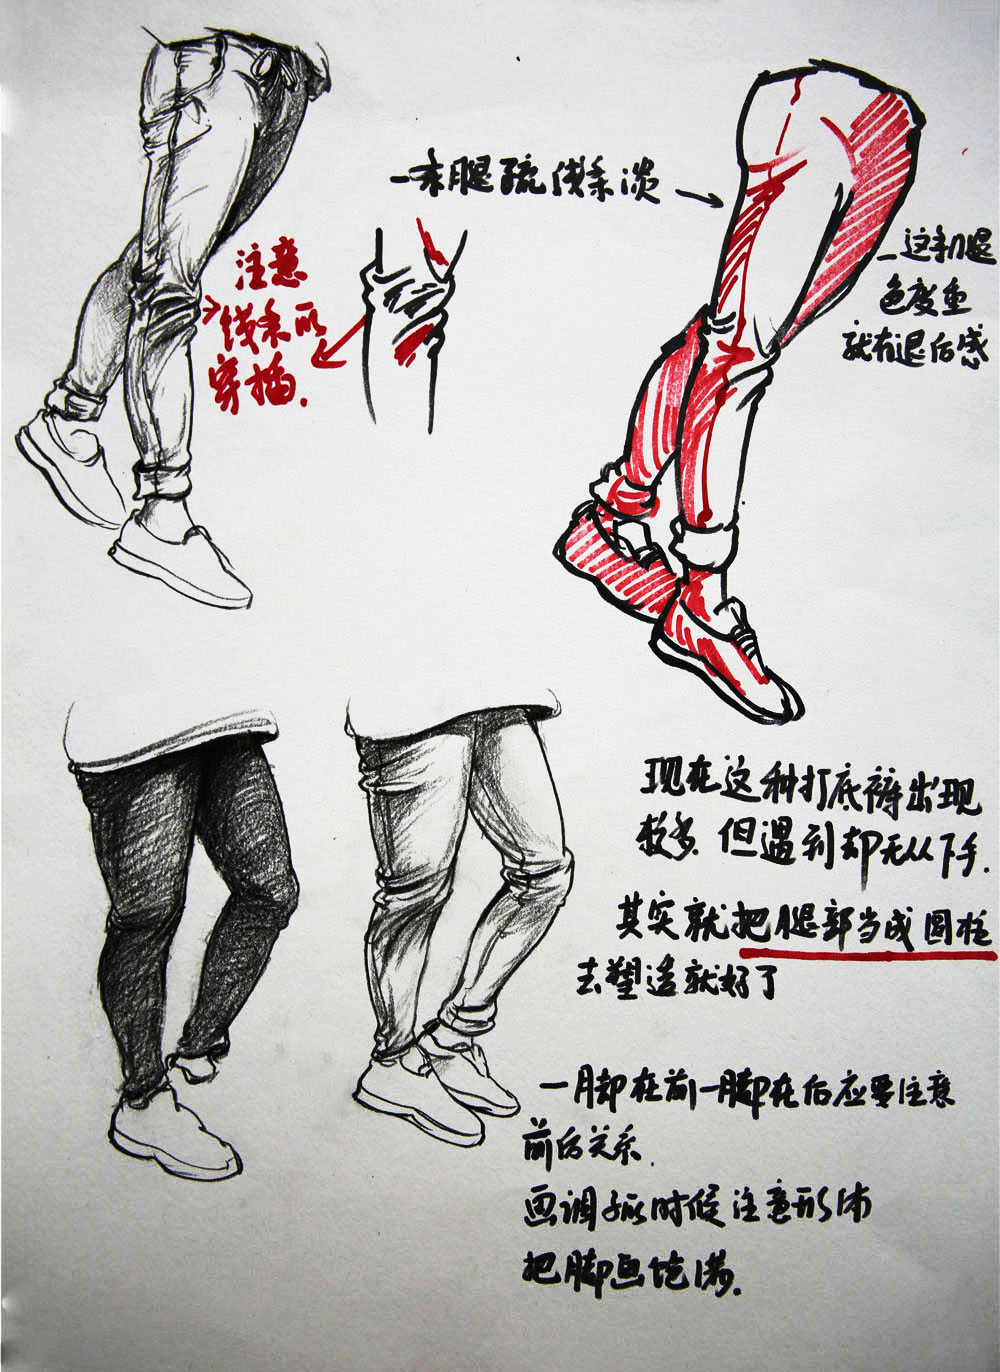 一末腿疏线条淡
注意
线条的
穿插.
这种腿
色度重
就有退后感
现在这种打底裤出现
较多.但遇到却无从下手.
其实就把腿部当成圆柱
去塑造就好了
一脚在前一脚在后应要注意
前后关系.
画调子的时候注意形体
把脚画饱满.